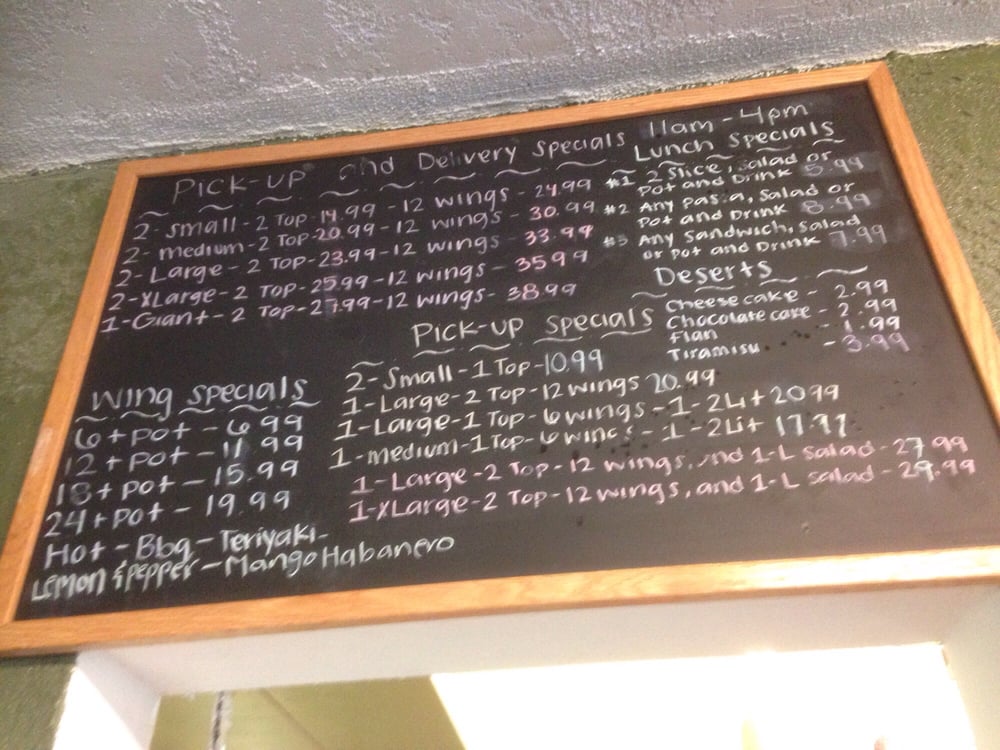 Pick-up and Delivery specials
2-small-2 Top-14.99-12 wings-24.99
2-medium-2 Top-20.99-12 wings-30.99
2-Large-2 Top-23.99-12 wings-33.99
2-XLarge-2 Top-25.99-12 wings-35.99
1-Giant-2 Top-27.99-12 wings-38.99
11am-4pm
Lunch specials
#1 2 slice, salad or
pot and Drink 5.99
#2 Any pasta, Salad or
pot and Drink 8.99
#3 Any sandwich, salad
or pot and Drink 7.99
Deserts
Cheesecake - 2.99
Chocolate cake - 2.99
Flan - 1.99
Tiramisu - 3.99
Pick-up specials
2-Small-1 Top-10.99
1-Large-2 Top-12 wings 20.99
1-Large-1 Top-6 wings-1-2Lit 20.99
1-medium-1 Top-6 wings-1-2Lit
1-Large-2 Top-12 wings, and 1-L salad-27.99
1-XLarge-2 Top-12 wings, and 1-L salad-29.99
Wing specials
6+pot-6.99
12+pot-11.99
18+pot-15.99
24+pot-19.99
Hot-Bbq-Teriyaki-
Lemon & pepper-Mango Habanero